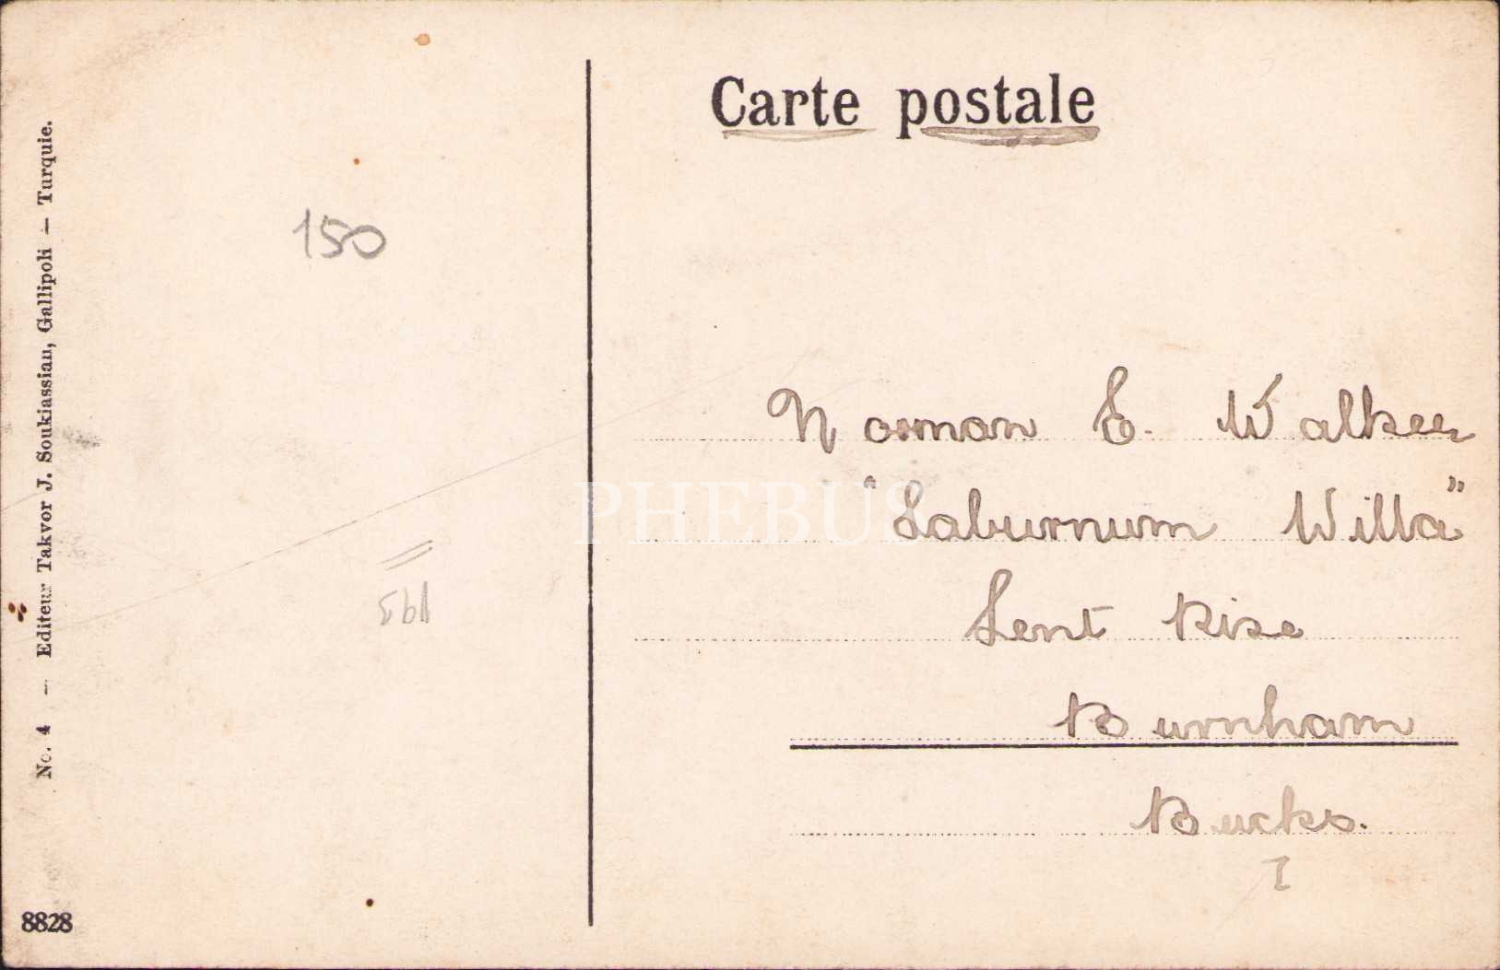 Carte postale
No. 4 — Editeur Takvor J. Soukiassian, Gallipoli — Turquie.
150
Norman E. Walker
"Laburnum Villa"
Lent Rise
Burnham
Bucks.
8828
PHEBUS